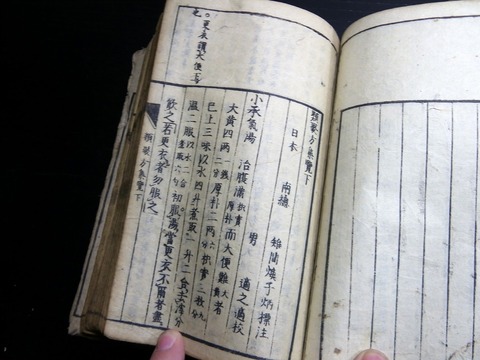 ○更衣謂大便
也
類聚方集覽下
日本 南總 雉間煥子炳標注
男 適之 校
小承氣湯 治腹滿 而大便難者
大黄四兩 厚朴二兩 枳實三枚
已上三味以水四升煮取一升二合去滓分
温二服 初服湯當更衣不爾者盡
飲之若更衣者勿服之
類聚方集覽下